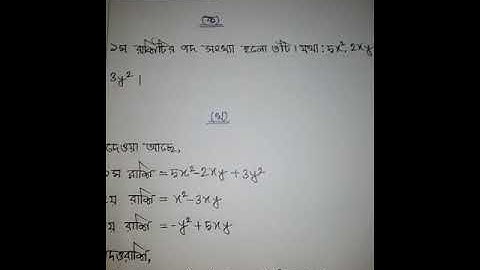 (ক)
১ম রাশিটির পদ সংখ্যা হলো ৩টি। যথা: 5x², 2xy
3y² ।
(খ)
দেওয়া আছে,
১ম রাশি = 5x²-2xy+3y²
য় রাশি = x²-3xy
য় রাশি = -y²+5xy